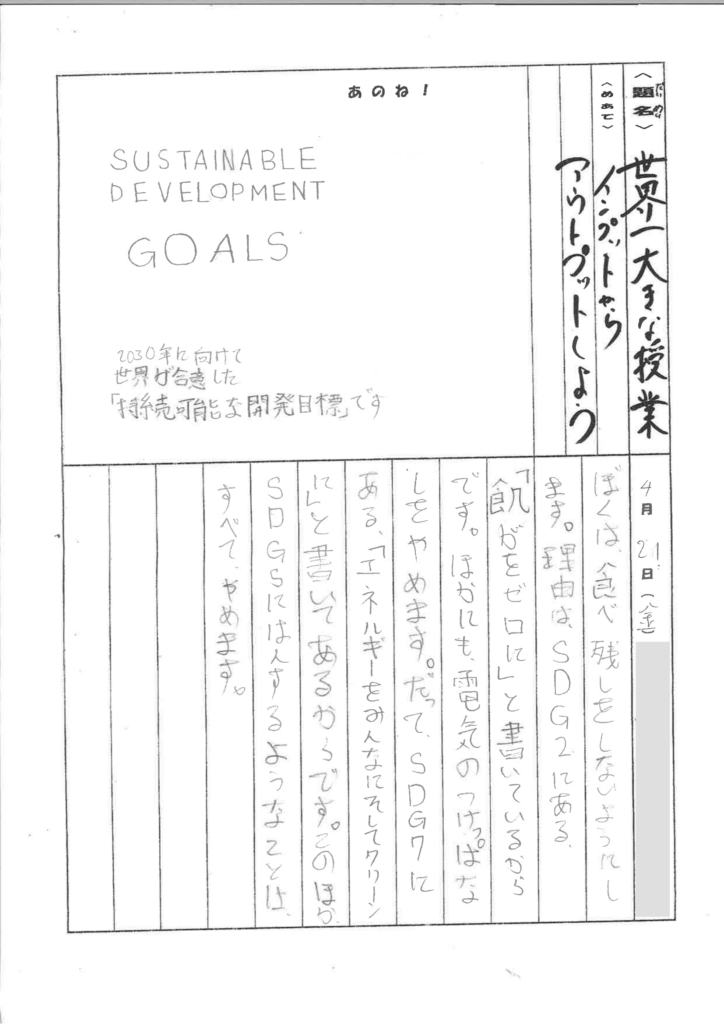 〈題名〉世界一大きな授業
〈めあて〉インプットから
アウトプットしよう
あのね！
SUSTAINABLE
DEVELOPMENT
GOALS
2030年に向けて
世界が合意した
「持続可能な開発目標」です
4月21日(金)
ぼくは、食べ残しをしないようにし
ます。理由は、SDG2にある、
「飢がをゼロに」と書いているから
です。ほかにも、電気のつけっぱな
しをやめます。だって、SDG7に
ある、「エネルギーをみんなにそしてクリーン
に」と書いてあるからです。このほか、
SDGSにはんするようなことは、
すべて、やめます。